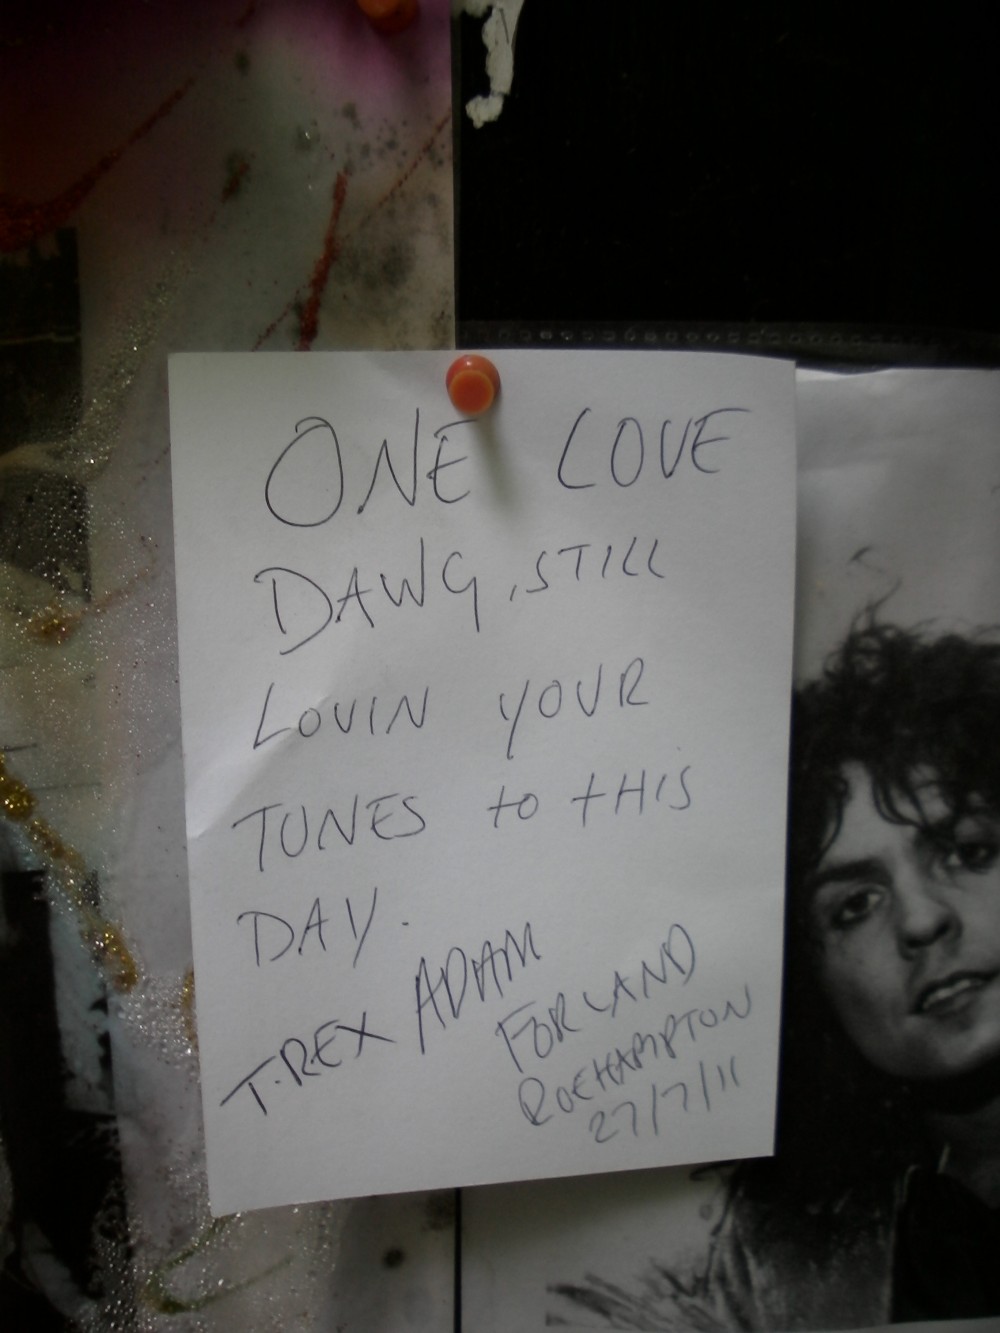 ONE LOVE
DAWG, STILL
LOVIN YOUR
TUNES to tHIS
DAY.
T.REX ADAM
FORLAND
ROEHAMPTON
27/7/11